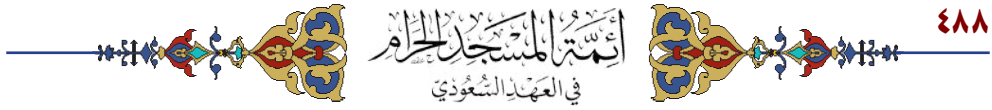 ٤٨٨
أَئِمَّةُ المَسْجِدِ الحَرَامِ
فِي العَهْدِ السُّعُودِيّ